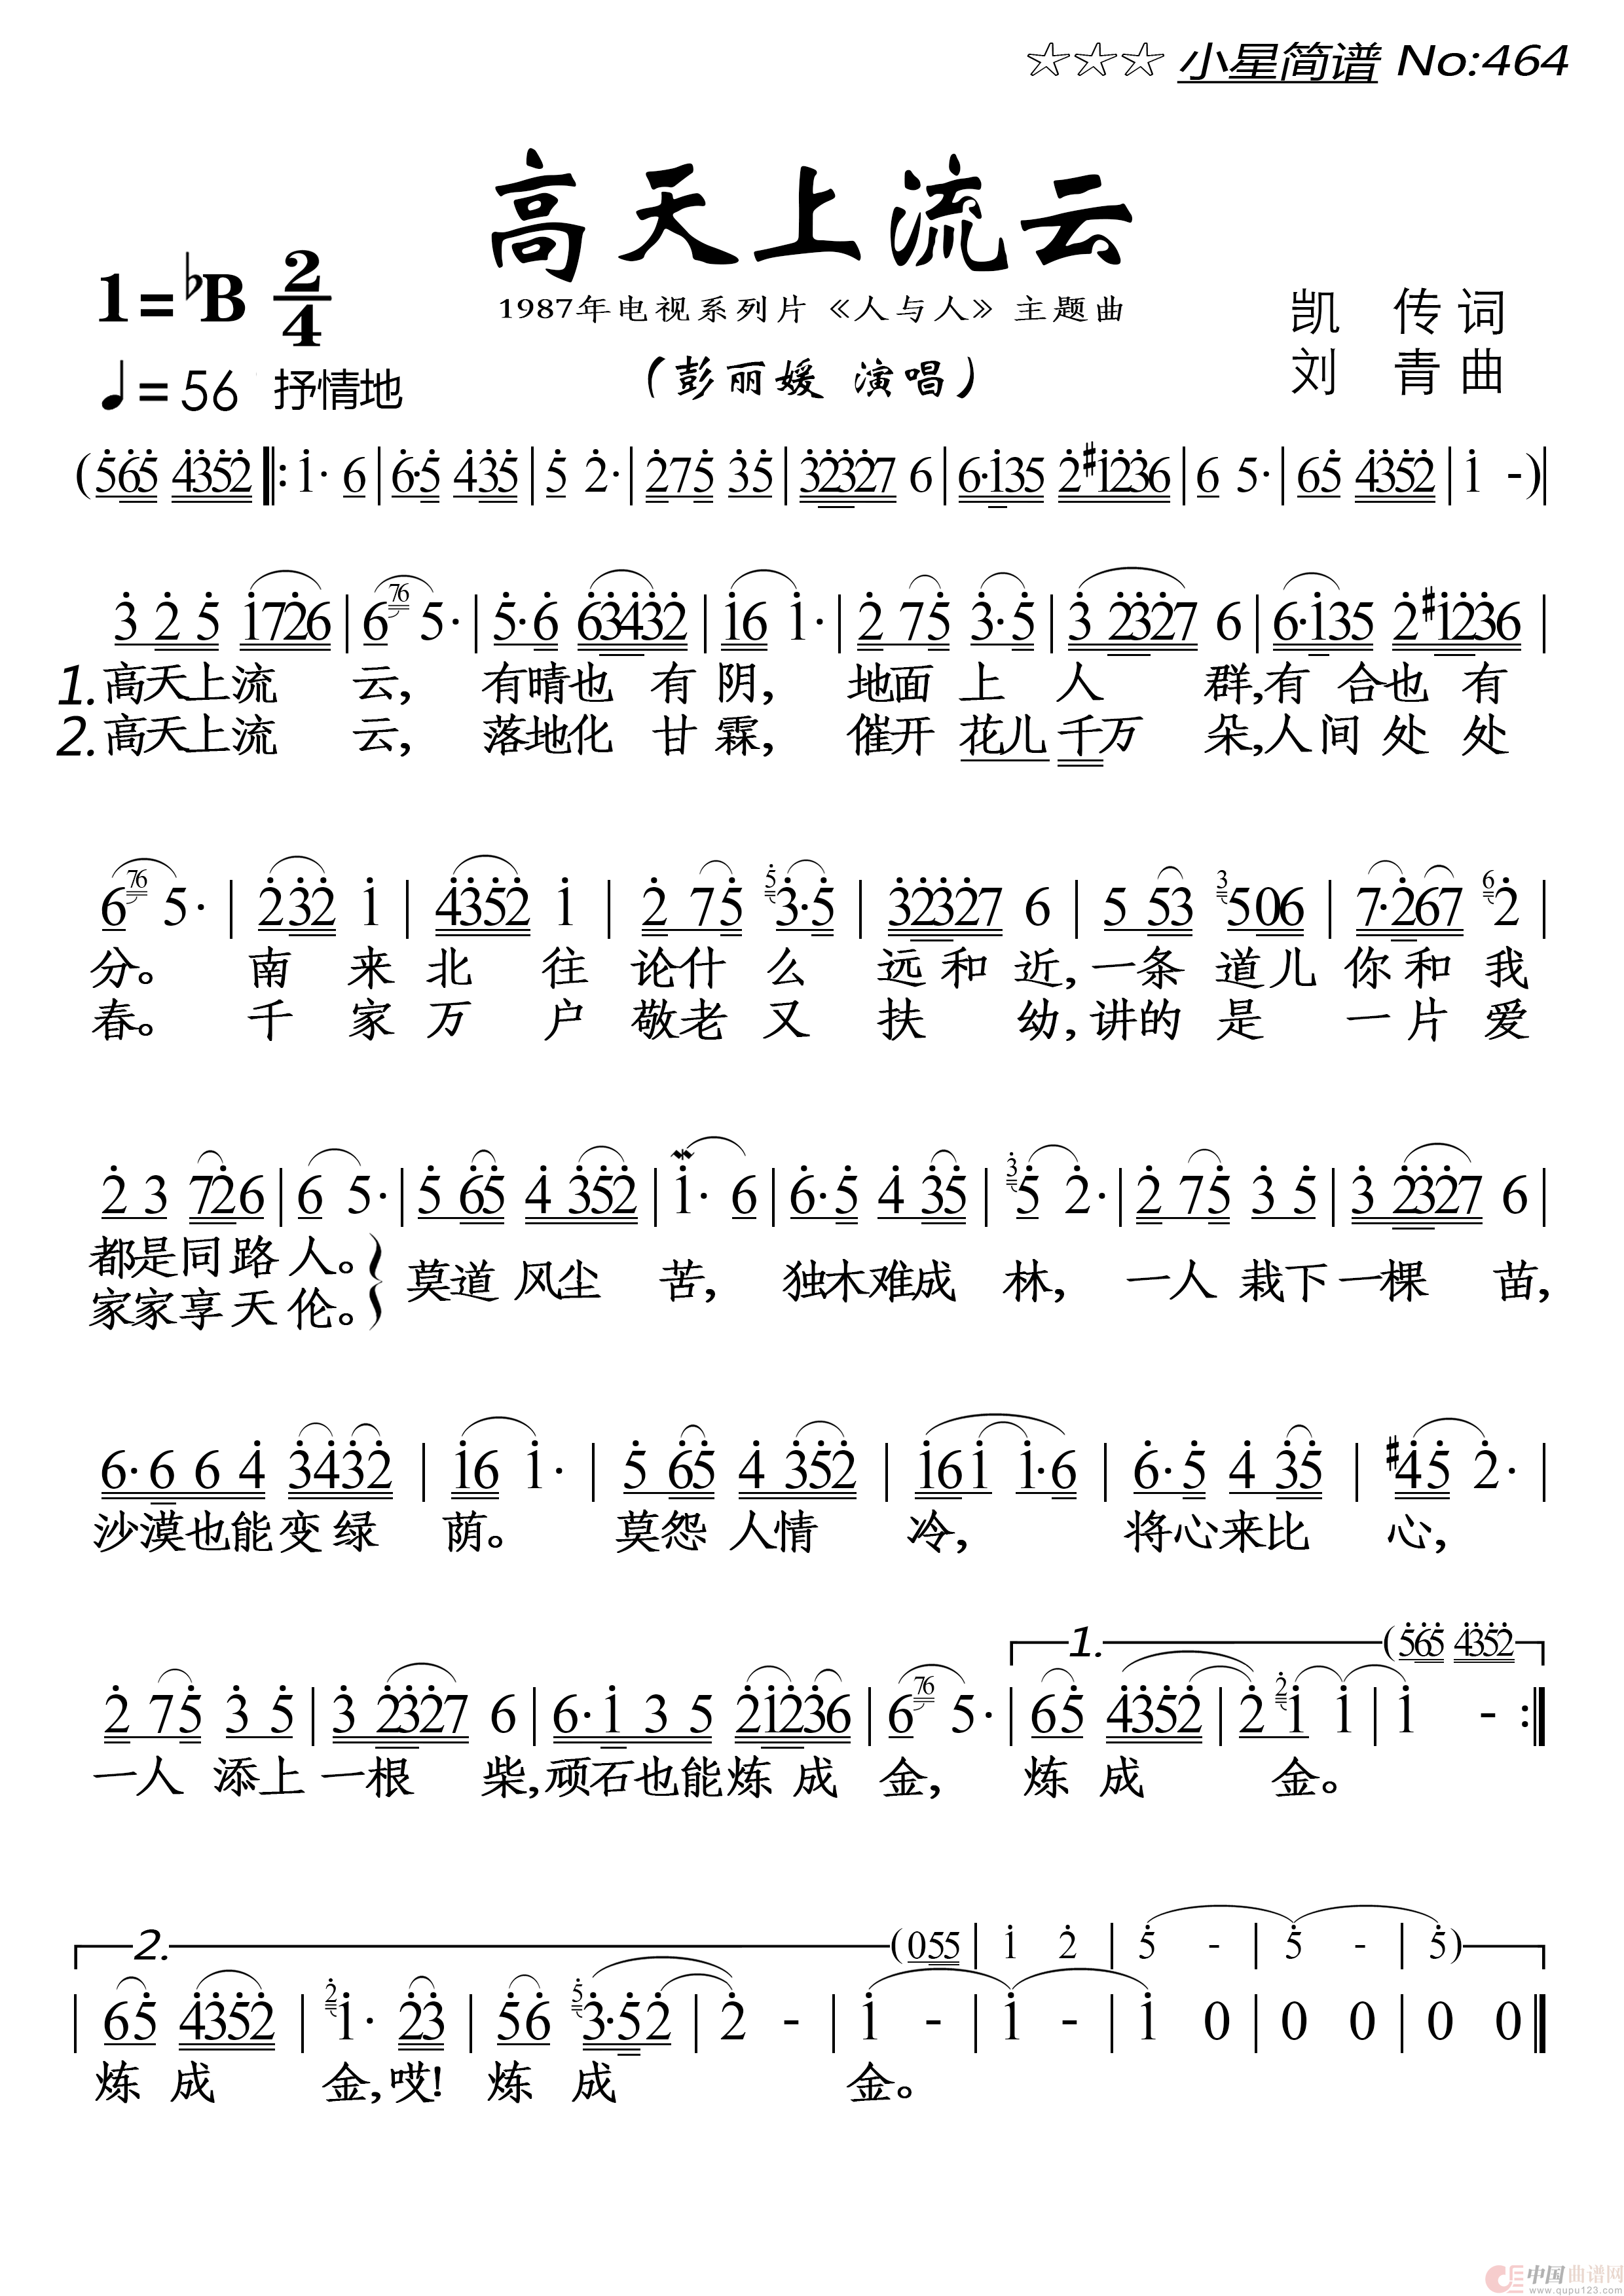 ☆☆☆ 小星简谱 No:464
高天上流云
1=♭B 2/4
1987年电视系列片《人与人》主题曲
凯 传 词
♩=56 抒情地
(彭丽媛 演唱)
刘 青 曲
(565 4352 ‖: 1· 6 | 6·5 435 | 5 2· | 275 35 | 32327 6 | 6·135 2#1236 | 6 5· | 65 4352 | 1 -)|
3 2 5 1726 | 6 76 5· | 5·6 63432 | 16 1· | 2 75 3·5 | 3 2327 6 | 6·135 2#1236 |
1.高天上流 云, 有晴也 有 阴, 地面 上 人 群,有 合也 有
2.高天上流 云, 落地化 甘 霖, 催开 花儿 千万 朵,人 间 处 处
6 76 5· | 232 1 | 4352 1 | 2 75 5 3·5 | 32327 6 | 5 53 3 506 | 7·267 6 2 |
分。 南 来 北 往 论什 么 远 和 近,一条 道儿 你 和 我
春。 千 家 万 户 敬老 又 扶 幼,讲的 是 一 片 爱
2 3 726 | 6 5· | 5 65 4 352 | 1· 6 | 6·5 4 35 | 3 5 2· | 2 75 3 5 | 3 2327 6 |
都是同 路 人。
莫道 风尘 苦, 独木难成 林, 一人 栽下 一棵 苗,
家家享 天 伦。
6·6 6 4 3432 | 16 1· | 5 65 4 352 | 161 1·6 | 6·5 4 35 | #45 2· |
沙漠也能 变 绿 荫。 莫怨 人情 冷, 将心来比 心,
1. (565 4352
2 75 3 5 | 3 2327 6 | 6·1 3 5 21236 | 6 76 5· | 65 4352 | 2 2 1 1 | 1 - :‖
一人 添上 一根 柴,顽石也能炼 成 金, 炼 成 金。
2. (055 | 1 2 | 5 - | 5 - | 5)
| 65 4352 | 2 1· 23 | 56 5 3·52 | 2 - | 1 - | 1 - | 1 0 | 0 0 | 0 0 ‖
炼 成 金,哎! 炼 成 金。
中国曲谱网
www.qupu123.com